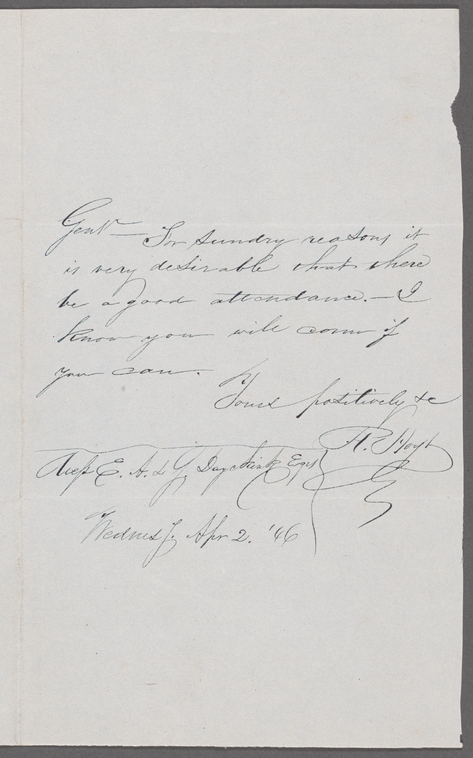 Gentn — For sundry reasons it
is very desirable that there
be a good attendance. — I
know you will come if
you can.
Yours positively &c
R. Hoyt
Messrs E. A. & G. Duyckink Esqs
Wednesy. Apr 2. '46